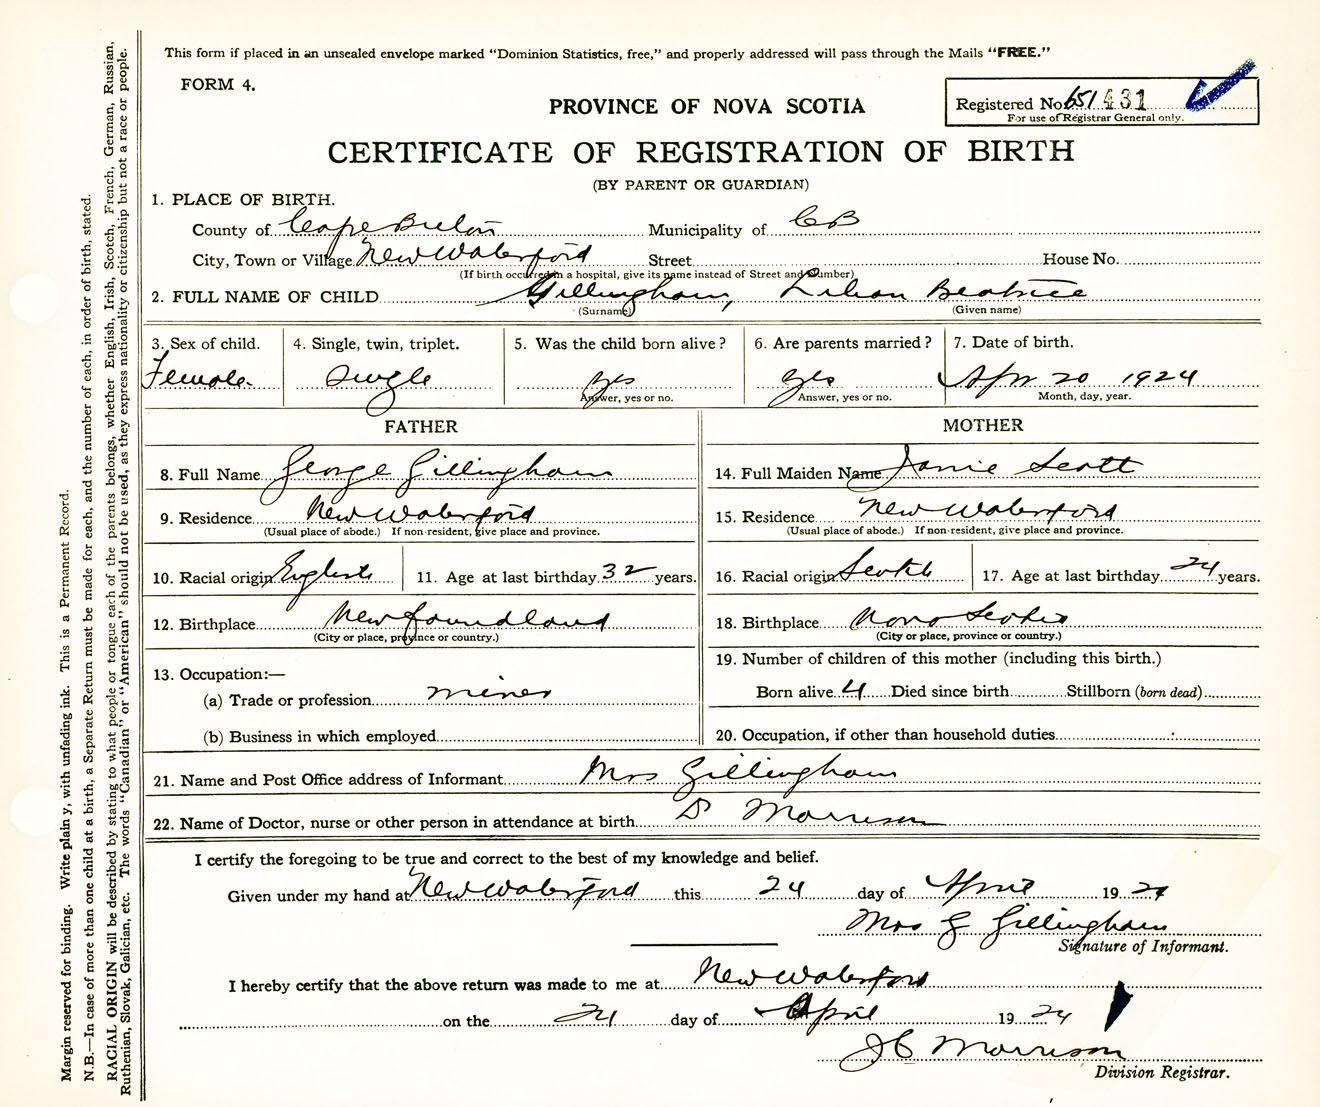 This form if placed in an unsealed envelope marked "Dominion Statistics, free," and properly addressed will pass through the Mails "FREE."
FORM 4.
PROVINCE OF NOVA SCOTIA
Registered No. 651431
For use of Registrar General only.
CERTIFICATE OF REGISTRATION OF BIRTH
(BY PARENT OR GUARDIAN)
1. PLACE OF BIRTH.
County of Cape Breton Municipality of CB
City, Town or Village New Waterford Street House No.
(If birth occurred in a hospital, give its name instead of Street and Number)
2. FULL NAME OF CHILD Gillingham, Lilian Beatrice
(Surname) (Given name)
3. Sex of child. 4. Single, twin, triplet. 5. Was the child born alive? 6. Are parents married? 7. Date of birth.
Female Single yes yes Apr 20 1924
Answer, yes or no. Answer, yes or no. Month, day, year.
FATHER
8. Full Name George Gillingham
9. Residence New Waterford
(Usual place of abode.) If non-resident, give place and province.
10. Racial origin English 11. Age at last birthday 32 years.
12. Birthplace Newfoundland
(City or place, province or country.)
13. Occupation:—
(a) Trade or profession miner
(b) Business in which employed
MOTHER
14. Full Maiden Name Janie Scott
15. Residence New Waterford
(Usual place of abode.) If non-resident, give place and province.
16. Racial origin Scotch 17. Age at last birthday 24 years.
18. Birthplace Nova Scotia
(City or place, province or country.)
19. Number of children of this mother (including this birth.)
Born alive 4 Died since birth Stillborn (born dead)
20. Occupation, if other than household duties
21. Name and Post Office address of Informant Mrs Gillingham
22. Name of Doctor, nurse or other person in attendance at birth Dr Morrison
I certify the foregoing to be true and correct to the best of my knowledge and belief.
Given under my hand at New Waterford this 24 day of April 1924
Mrs G Gillingham
Signature of Informant.
I hereby certify that the above return was made to me at New Waterford
on the 24 day of April 1924
J C Morrison
Division Registrar.
Margin reserved for binding. Write plainly, with unfading ink. This is a Permanent Record.
N.B.—In case of more than one child at a birth, a Separate Return must be made for each, and the number of each, in order of birth, stated.
RACIAL ORIGIN will be described by stating to what people or tongue each of the parents belongs, whether English, Irish, Scotch, French, German, Russian,
Ruthenian, Slovak, Galician, etc. The words "Canadian" or "American" should not be used, as they express nationality or citizenship but not a race or people.